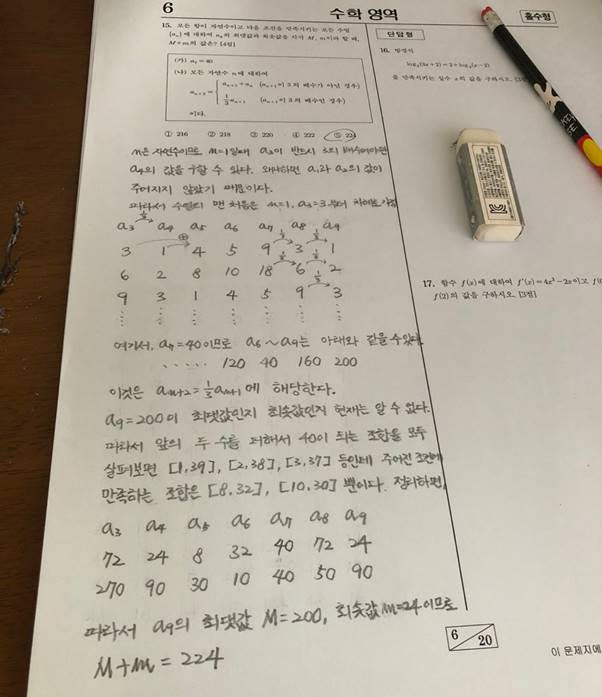 6
수학 영역
홀수형
15. 모든 항이 자연수이고 다음 조건을 만족시키는 모든 수열
{aₙ}에 대하여 a₉의 최댓값과 최솟값을 각각 M, m이라 할 때,
M+m의 값은? [4점]
(가) a₇=40
(나) 모든 자연수 n에 대하여
aₙ₊₂ = { aₙ₊₁+aₙ (aₙ₊₁이 3의 배수가 아닌 경우)
⅓aₙ₊₁ (aₙ₊₁이 3의 배수인 경우)
이다.
① 216 ② 218 ③ 220 ④ 222 ⑤ 224
n은 자연수이므로 n=1일때 a₃이 반드시 3의 배수여야만
a₄의 값을 구할 수 있다. 왜냐하면 a₁과 a₂의 값이
주어지지 않았기 때문이다.
따라서 수열의 맨 처음은 n=1, a₃=3부터
a₃ a₄ a₅ a₆ a₇ a₈ a₉
3 1 4 5 9 3 1
6 2 8 10 18 6 2
9 3 1 4 5 9 3
여기서, a₇=40이므로 a₆~a₉는 아래와 같을 수 있다.
..... 120 40 160 200
이것은 aₙ₊₂=⅓aₙ₊₁에 해당한다.
a₉=200이 최댓값인지 최솟값인지 현재는 알 수 없다.
따라서 앞의 두 수를 더해서 40이 되는 조합을 모두
살펴보면 [1,39], [2,38], [3,37] 등인데 주어진 조건에
만족하는 조합은 [8,32], [10,30] 뿐이다. 정리하면,
a₃ a₄ a₅ a₆ a₇ a₈ a₉
72 24 8 32 40 72 24
270 90 30 10 40 50 90
따라서 a₉의 최댓값 M=200, 최솟값 m=24이므로
M+m=224
단답형
16. 방정식
log₂(3x+2)=2+log₂(x-2)
를 만족시키는 실수 x의 값을 구하시오. [3점]
17. 함수 f(x)에 대하여 f'(x)=4x³-2x이고
f(2)의 값을 구하시오. [3점]
6
20
이 문제지에